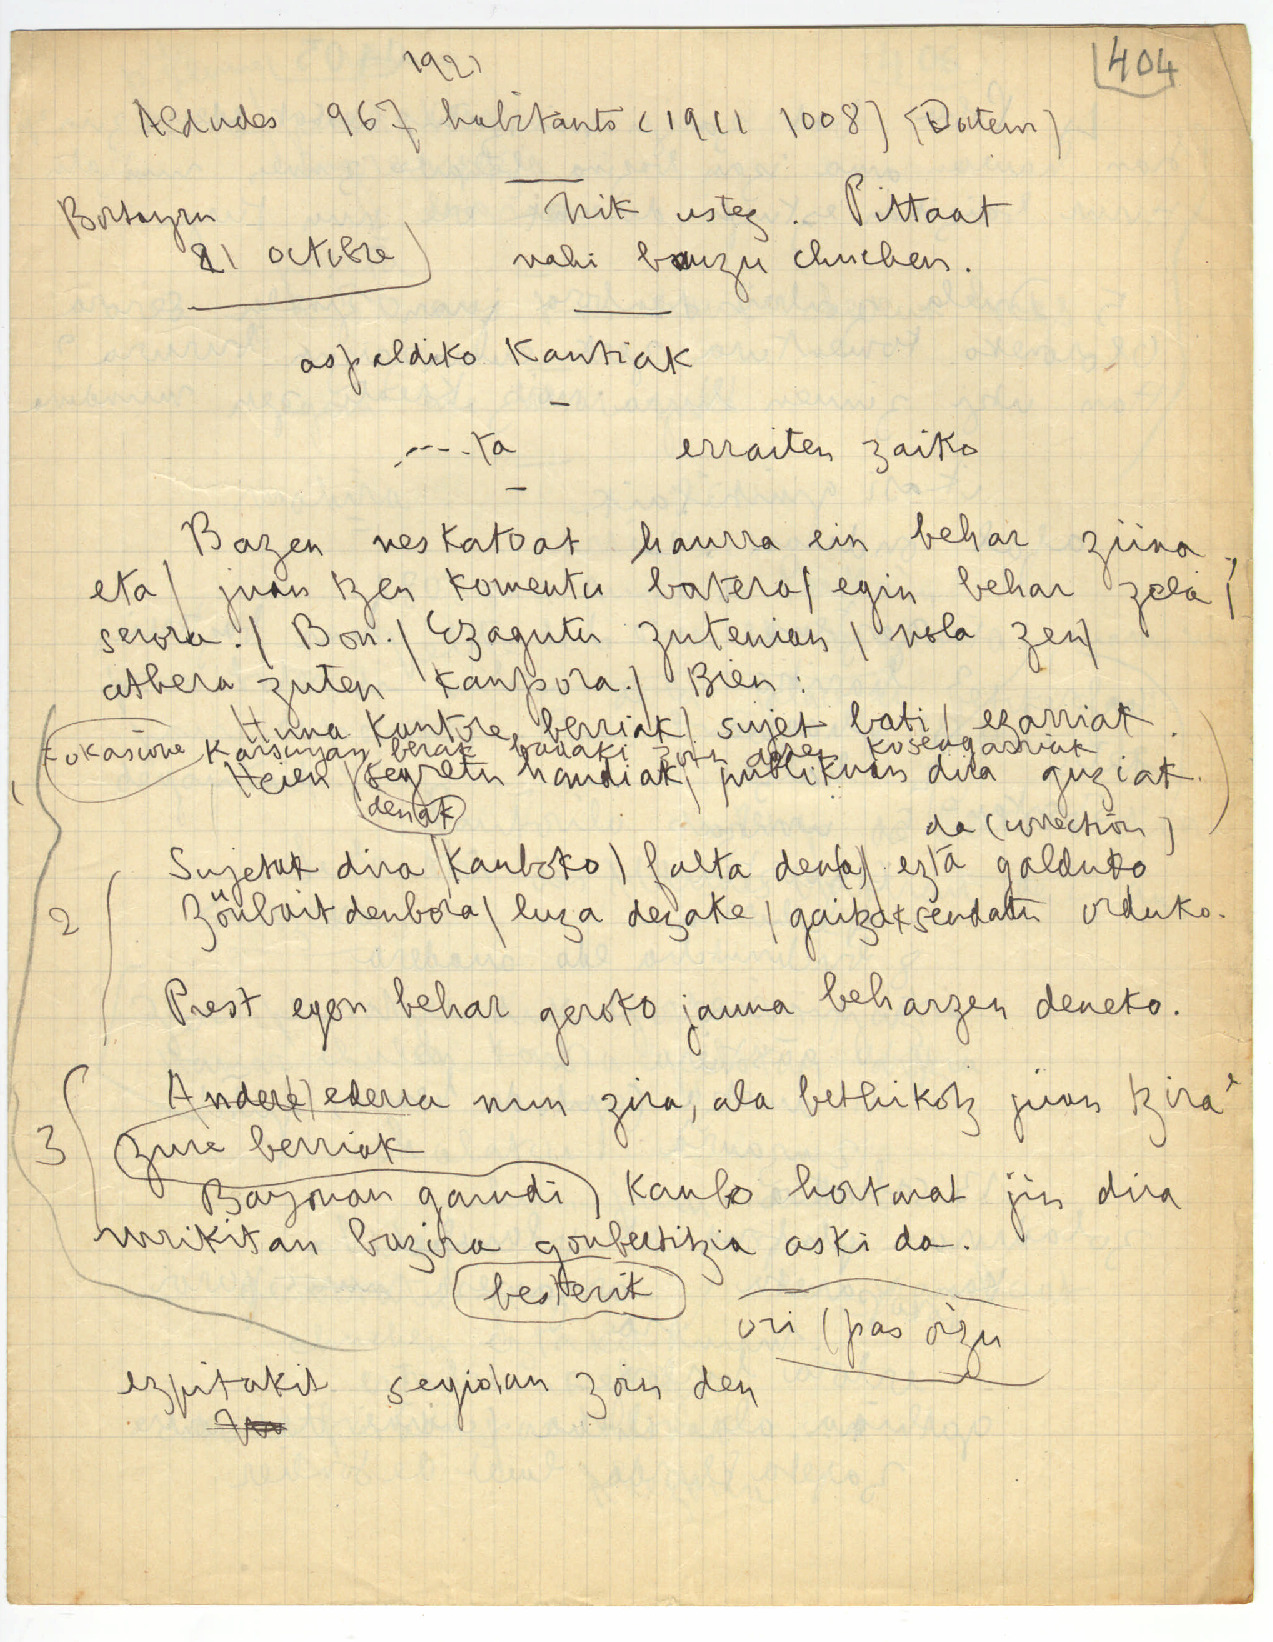 404
1921
Aldudes 967 habitants (1911 1008) (Datem)
Nik ustez. Pittaat
21 octobre)
nahi bauzu chuchen.
aspaldiko Kantiak
.---.ta erraiten zaiko
Bazen neskatoat haurra ein behar ziina,
eta / juan tzen komentu batera / egin behar zela /
serora. / Bon. / Ezagutu zutenian / nola zen /
athera zuten kanpora. / Bien :
Huna kantore berriak / sujet bati / ezarriak.
okasione berak badaki zoin diren
Heien / segretu handiak / publikuan dira guziak.
denak
da (correction)
Sujetak dira / Kanboko / falta den(a) / ezta galduko
Zönbait denbora / luza dezake / gaitzak sendatu orduko.
2
Prest egon behar geroko jauna beharzen deneko.
Andere / ederra nun zira, ala bethikotz jüan tzira
3 zure berriak
Bayonan gaindi / Kanbo hortarat jin dira
urrikitan bazira gonbertitzia aski da.
besterik
ori (pas öizu
ezpitakit segidan zoin den